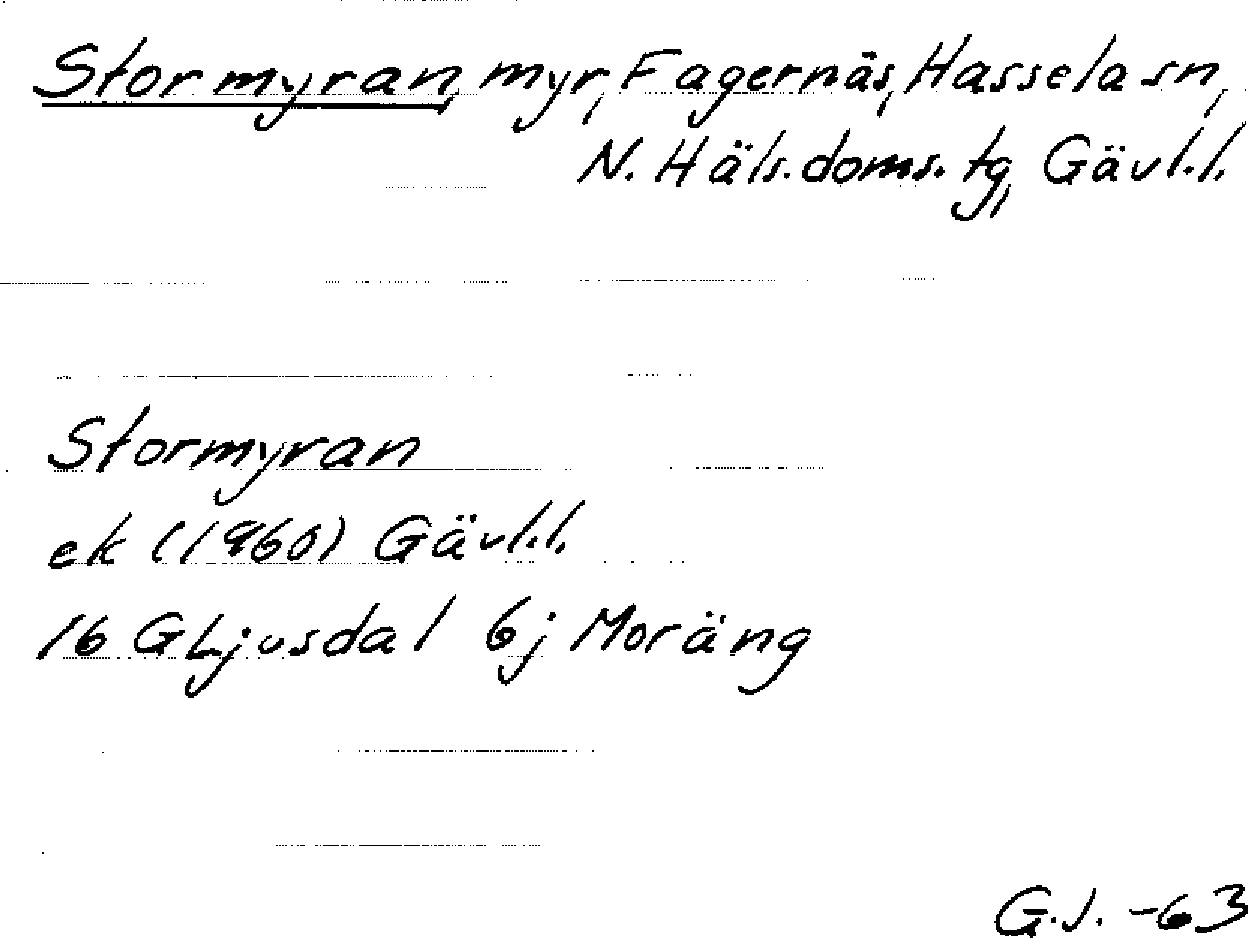 Stormyran, myr, Fagernäs, Hassela sn,
N. Häls. doms. tg, Gävl.l.
Stormyran
ek (1960) Gävl.l.
16 G Ljusdal 6j Moräng
G.J. -63